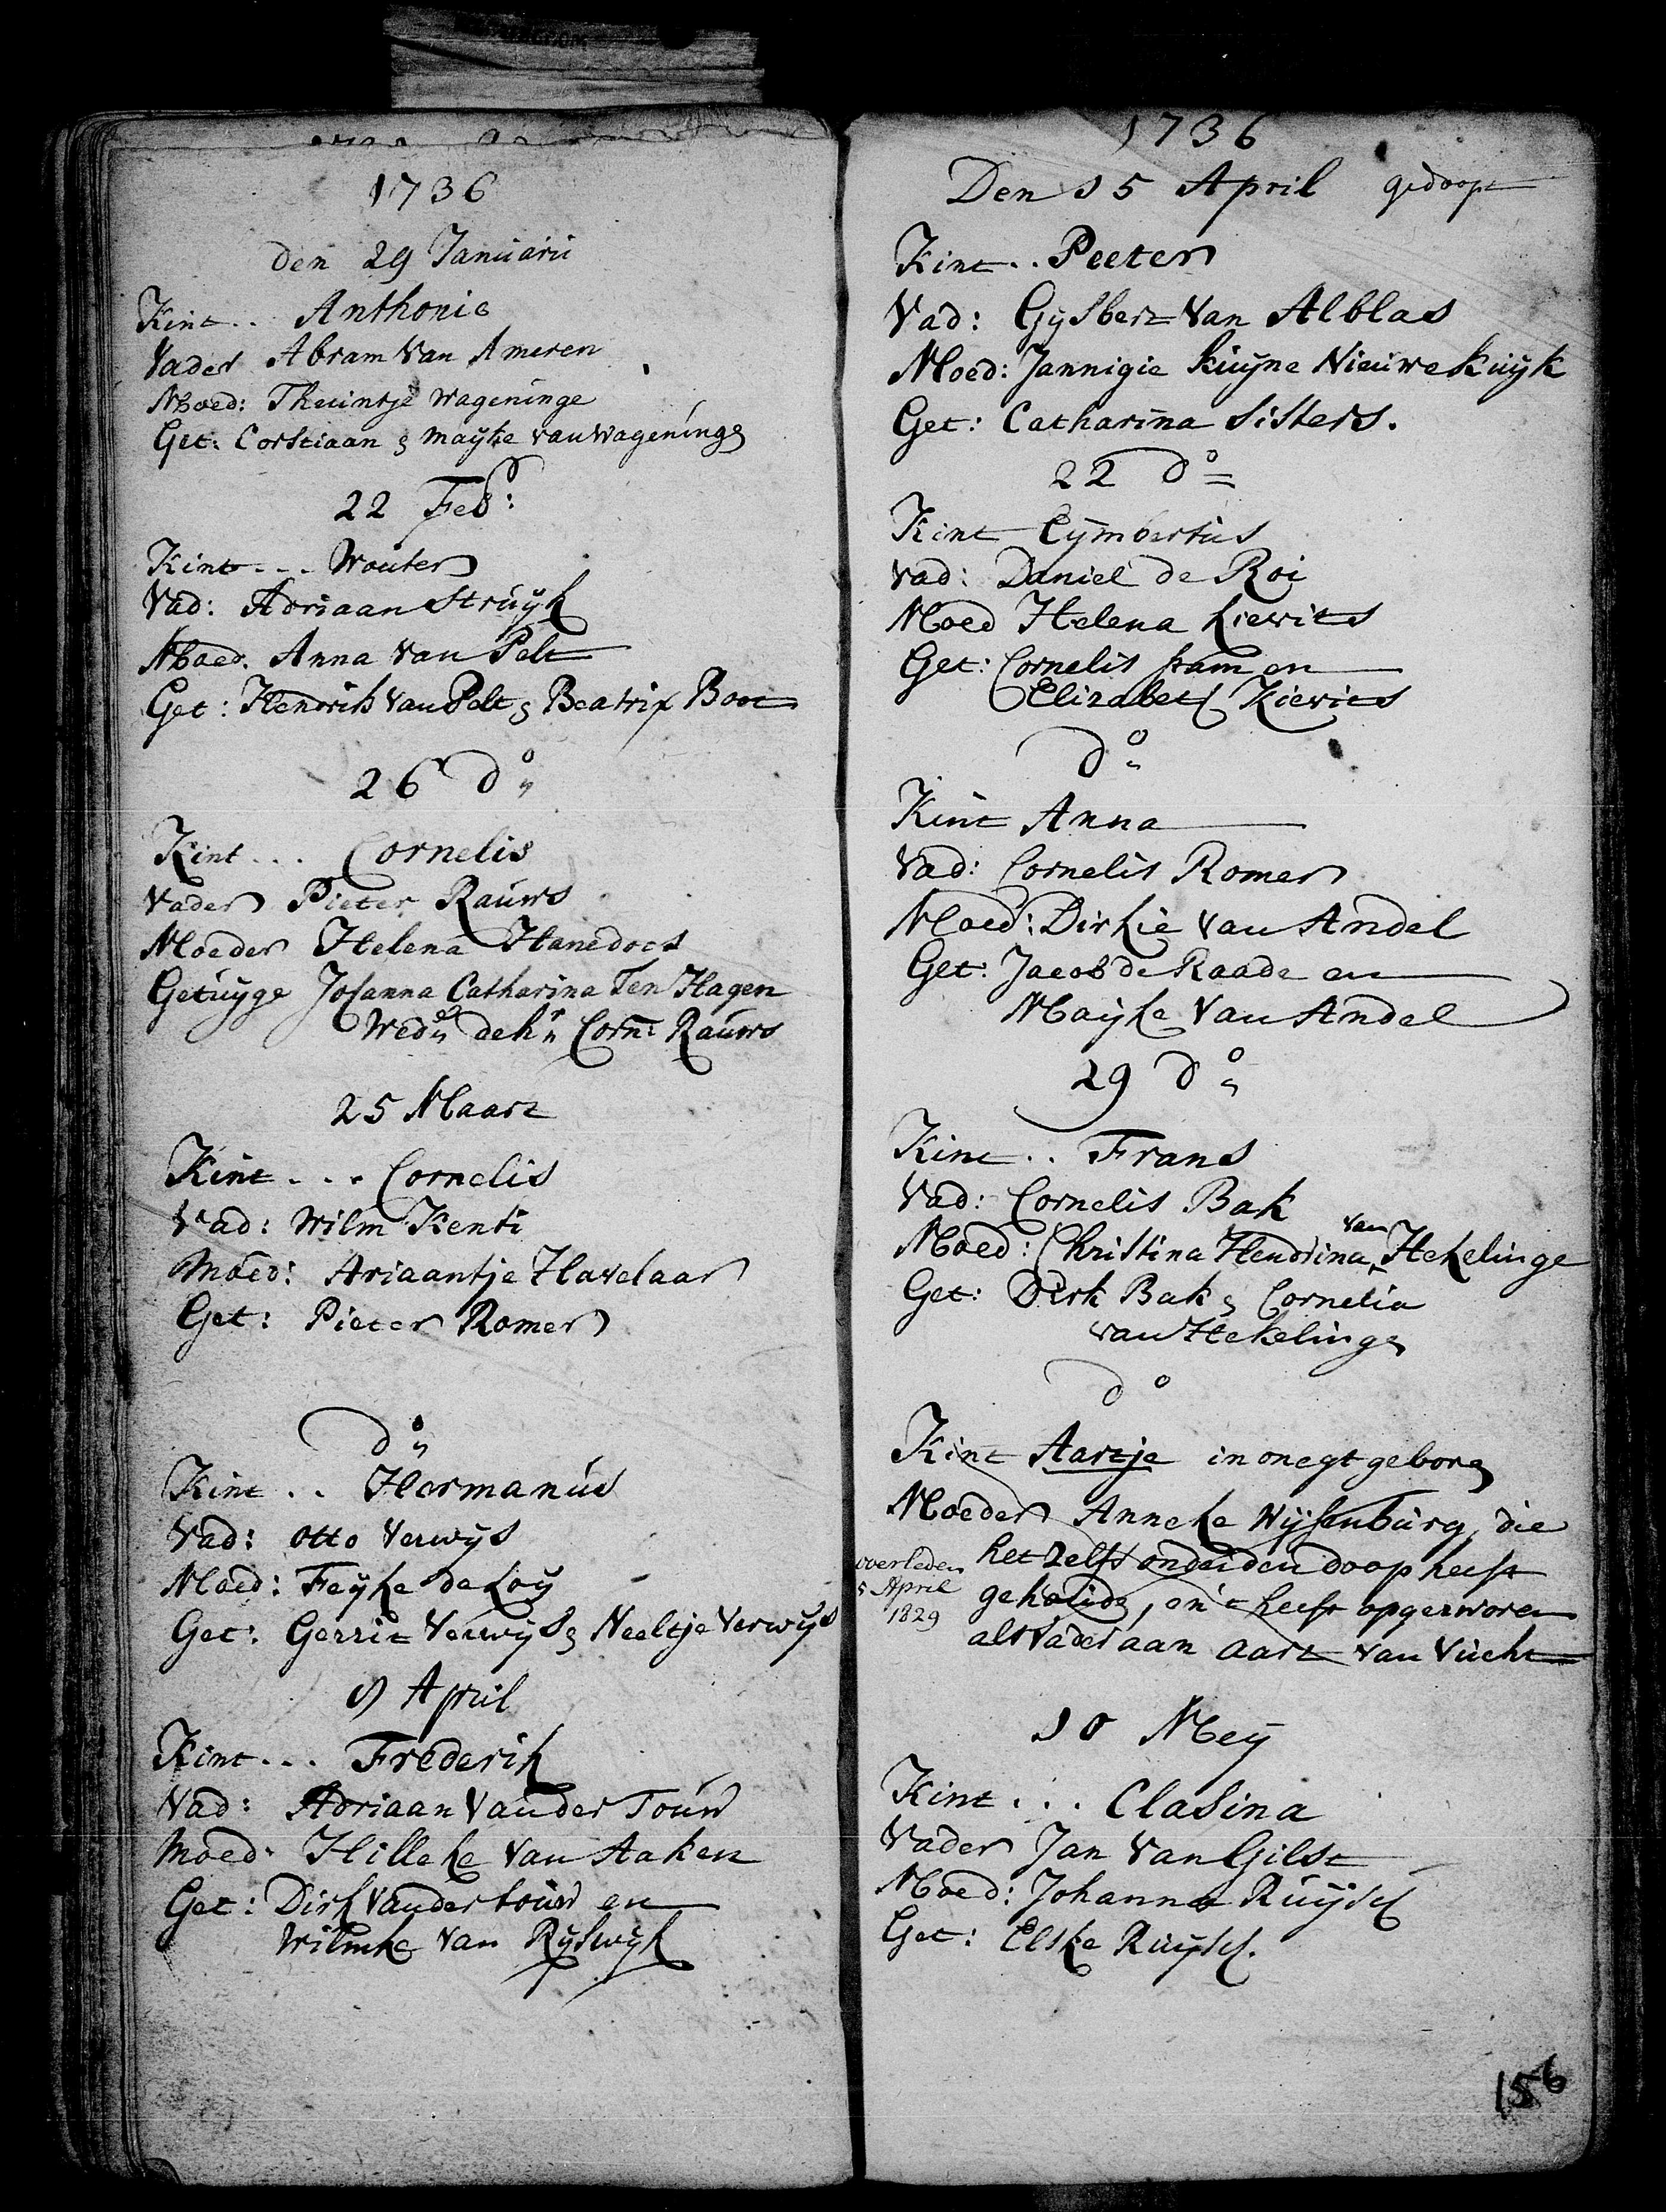 1736
den 29 Januarii
Kint.. Anthonie
Vader Abram Van Ameren
Moed: Theuntje Wageninge
Get: Corstiaan & Mayke van Wageninge
22 Feb:
Kint... Wouter
Vad: Adriaan Struyk
Moed. Anna Van Pelt
Get: Hendrik Van Pelt & Beatrix Boot
26 do
Kint... Cornelis
Vader Pieter Rauws
Moeder Helena Hanedoes
Getuyge Johanna Catharina Ten Hagen
Wede de hr Corns Rauws
25 Maart
Kint... Cornelis
Vad: Wilm Kenti
Moed: Ariaantje Havelaar
Get: Pieter Romer
do
Kint.. Hermanus
Vad: Otto Verwys
Moed: Feyke de Loy
Get: Gerrit Verwys & Neeltje Verwys
April
Kint... Frederik
Vad: Adriaan Van der Touw
Moed: Hilleke Van Aaken
Get: Dirk Van der touw en
Wilmke Van Ryswyk
1736
Den 15 April gedoopt
Kint.. Peeter
Vad: Gysbert Van Alblas
Moed: Jannigie Kuyne Nieuwe Kuyk
Get: Catharina Sisters.
22 do
Kint Cymbertus
Vad: Daniel de Roi
Moed Helena Kievits
Get: Cornelis en
Elizabeth Kievits
do
Kint Anna
Vad: Cornelis Romer
Moed: Dirkie Van Andel
Get: Jacob de Raade en
Mayke Van Andel
29 do
Kint.. Frans
Vad: Cornelis Bak
Moed: Christina Hendrina van Hekelinge
Get: Dirk Bak & Cornelia
van Hekelinge
do
Kint Aartje in onegt geboren
Moeder Anneke Wysenburg, die
het zelfs onder den doop heeft
gehoude, en 't heeft opgezworen
als Vader aan Aart Van Vucht
overleden
5 April
1829
10 Mey
Kint... Clasina
Vader Jan Van Gilst
Moed: Johanna Ruysch
Get: Elske Ruysch.
156